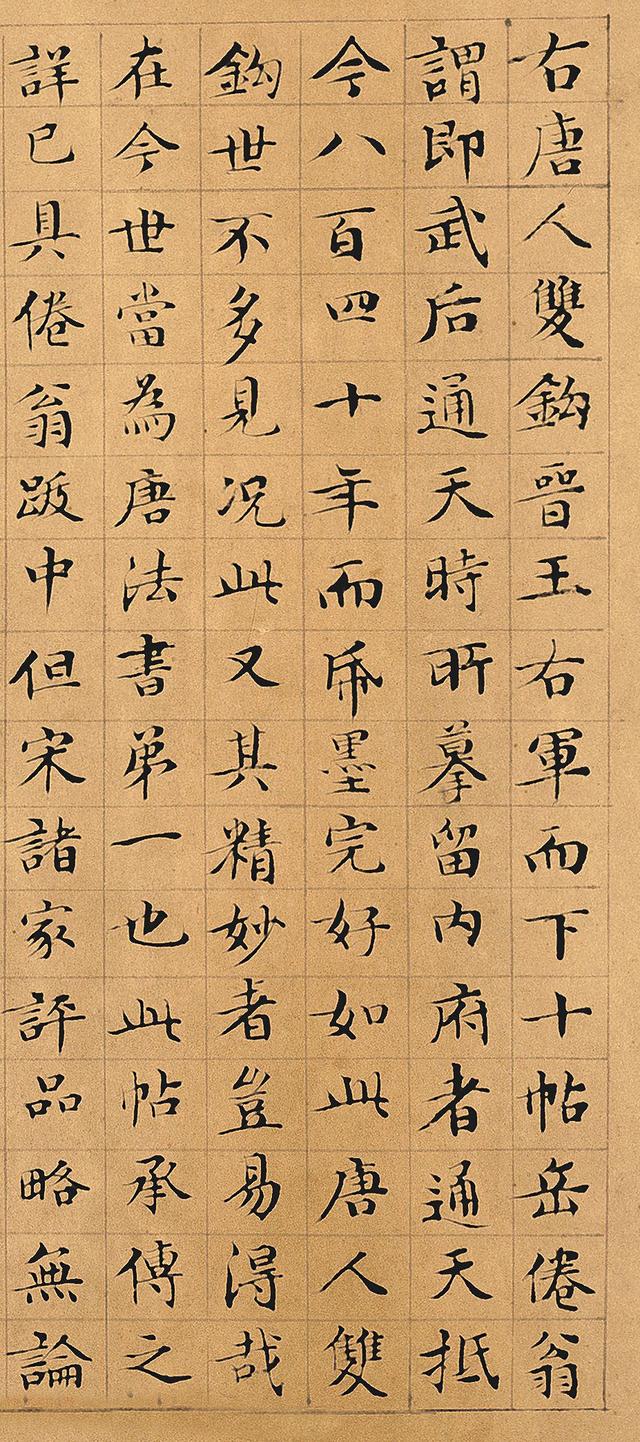 右唐人雙鈎晉王右軍而下十帖岳倦翁
謂即武后通天時所摹留內府者通天抵
今八百四十年而紙墨完好如此唐人雙
鈎世不多見况此又其精妙者豈易得哉
在今世當為唐法書弟一也此帖承傳之
詳已具倦翁跋中但宋諸家評品略無論